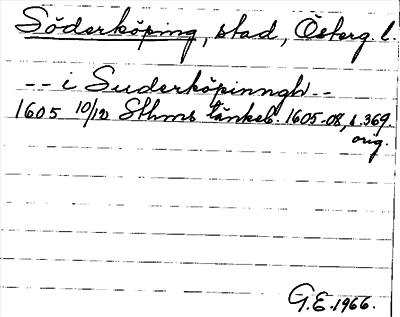 Söderköping, stad, Österg. l.
-- i Suderköpinngh --
1605 10/12 Sthms tänkeb. 1605-08, s. 369.
orig.
G.E. 1966.